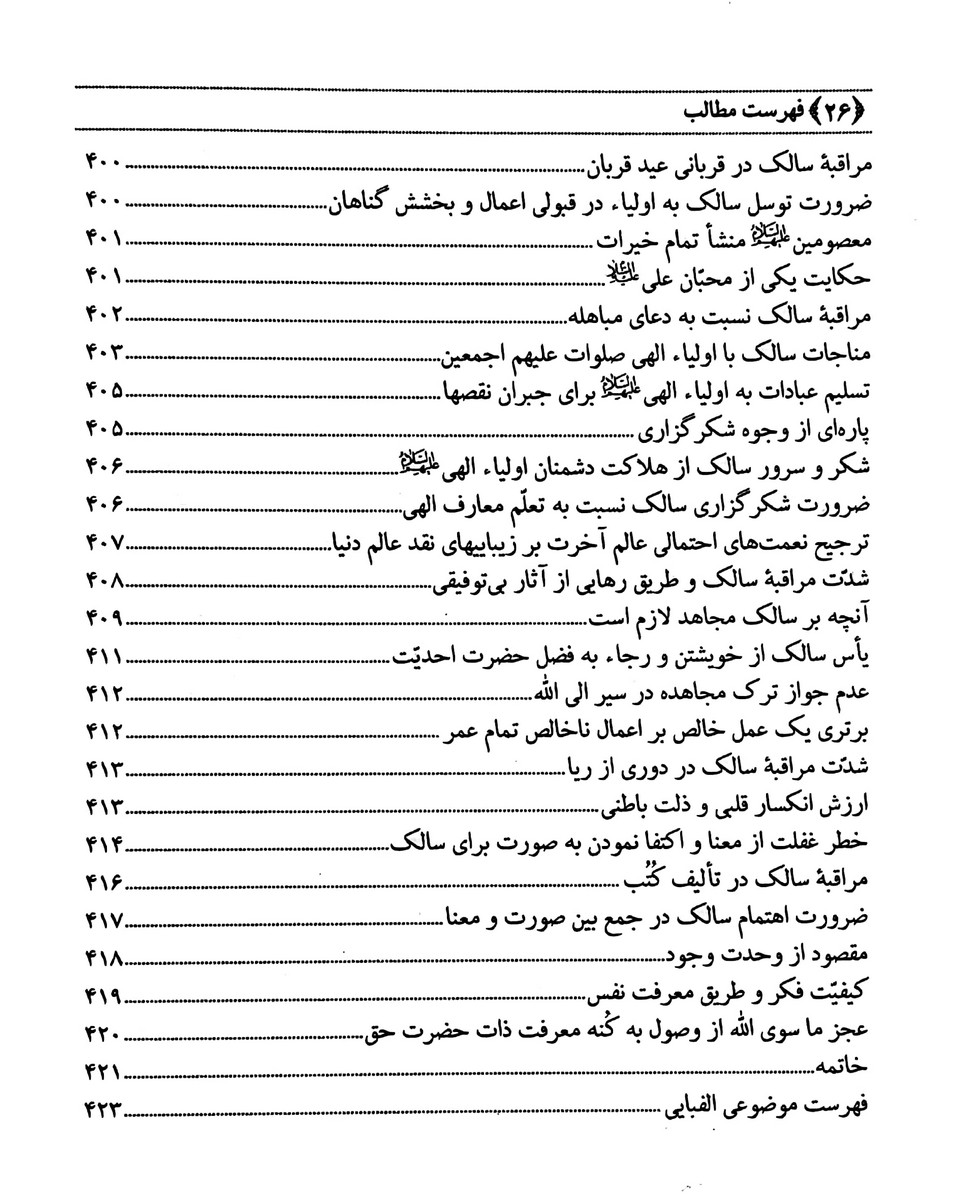 ﴿۲۶﴾ فهرست مطالب
مراقبهٔ سالک در قربانی عید قربان ۴۰۰
ضرورت توسل سالک به اولیاء در قبولی اعمال و بخشش گناهان ۴۰۰
معصومین علیهم‌السلام منشأ تمام خیرات ۴۰۱
حکایت یکی از محبّان علی علیه‌السلام ۴۰۱
مراقبهٔ سالک نسبت به دعای مباهله ۴۰۲
مناجات سالک با اولیاء الهی صلوات علیهم اجمعین ۴۰۳
تسلیم عبادات به اولیاء الهی علیهم‌السلام برای جبران نقصها ۴۰۵
پاره‌ای از وجوه شکرگزاری ۴۰۵
شکر و سرور سالک از هلاکت دشمنان اولیاء الهی علیهم‌السلام ۴۰۶
ضرورت شکرگزاری سالک نسبت به تعلّم معارف الهی ۴۰۶
ترجیح نعمت‌های احتمالی عالم آخرت بر زیباییهای نقد عالم دنیا ۴۰۷
شدّت مراقبهٔ سالک و طریق رهایی از آثار بی‌توفیقی ۴۰۸
آنچه بر سالک مجاهد لازم است ۴۰۹
یأس سالک از خویشتن و رجاء به فضل حضرت احدیّت ۴۱۱
عدم جواز ترک مجاهده در سیر الی الله ۴۱۲
برتری یک عمل خالص بر اعمال ناخالص تمام عمر ۴۱۲
شدّت مراقبهٔ سالک در دوری از ریا ۴۱۳
ارزش انکسار قلبی و ذلت باطنی ۴۱۳
خطر غفلت از معنا و اکتفا نمودن به صورت برای سالک ۴۱۴
مراقبهٔ سالک در تألیف کُتُب ۴۱۶
ضرورت اهتمام سالک در جمع بین صورت و معنا ۴۱۷
مقصود از وحدت وجود ۴۱۸
کیفیّت فکر و طریق معرفت نفس ۴۱۹
عجز ما سوی الله از وصول به کُنه معرفت ذات حضرت حق ۴۲۰
خاتمه ۴۲۱
فهرست موضوعی الفبایی ۴۲۳